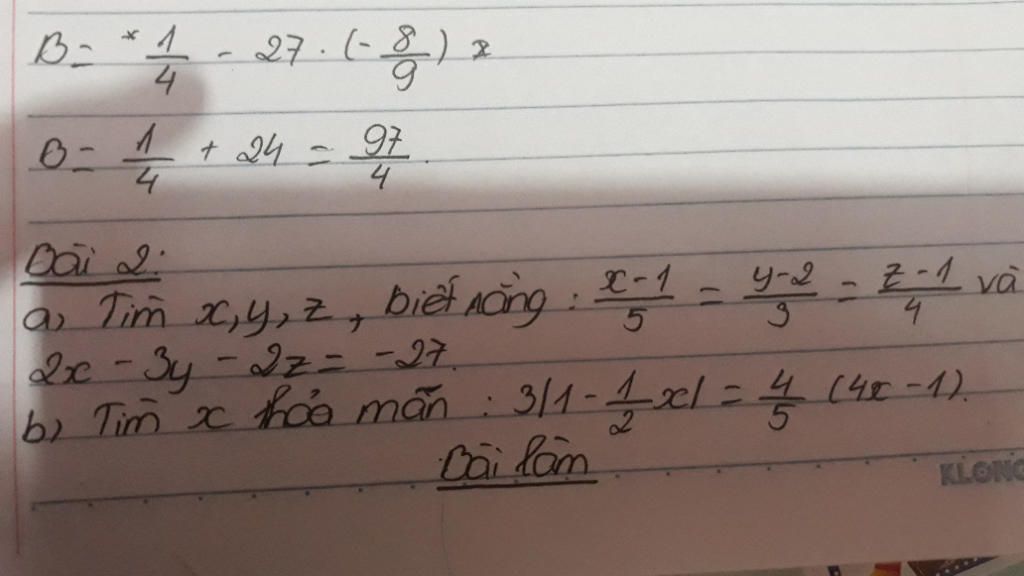 B = * 1/4 - 27 . (- 8/9) *
B = 1/4 + 24 = 97/4.
Bài 2:
a) Tìm x, y, z, biết rằng : x-1/5 = y-2/3 = z-1/4 và
2x - 3y - 2z = -27.
b) Tìm x thỏa mãn : 3|1 - 1/2 x| = 4/5 (4x - 1).
Bài làm
KLONG